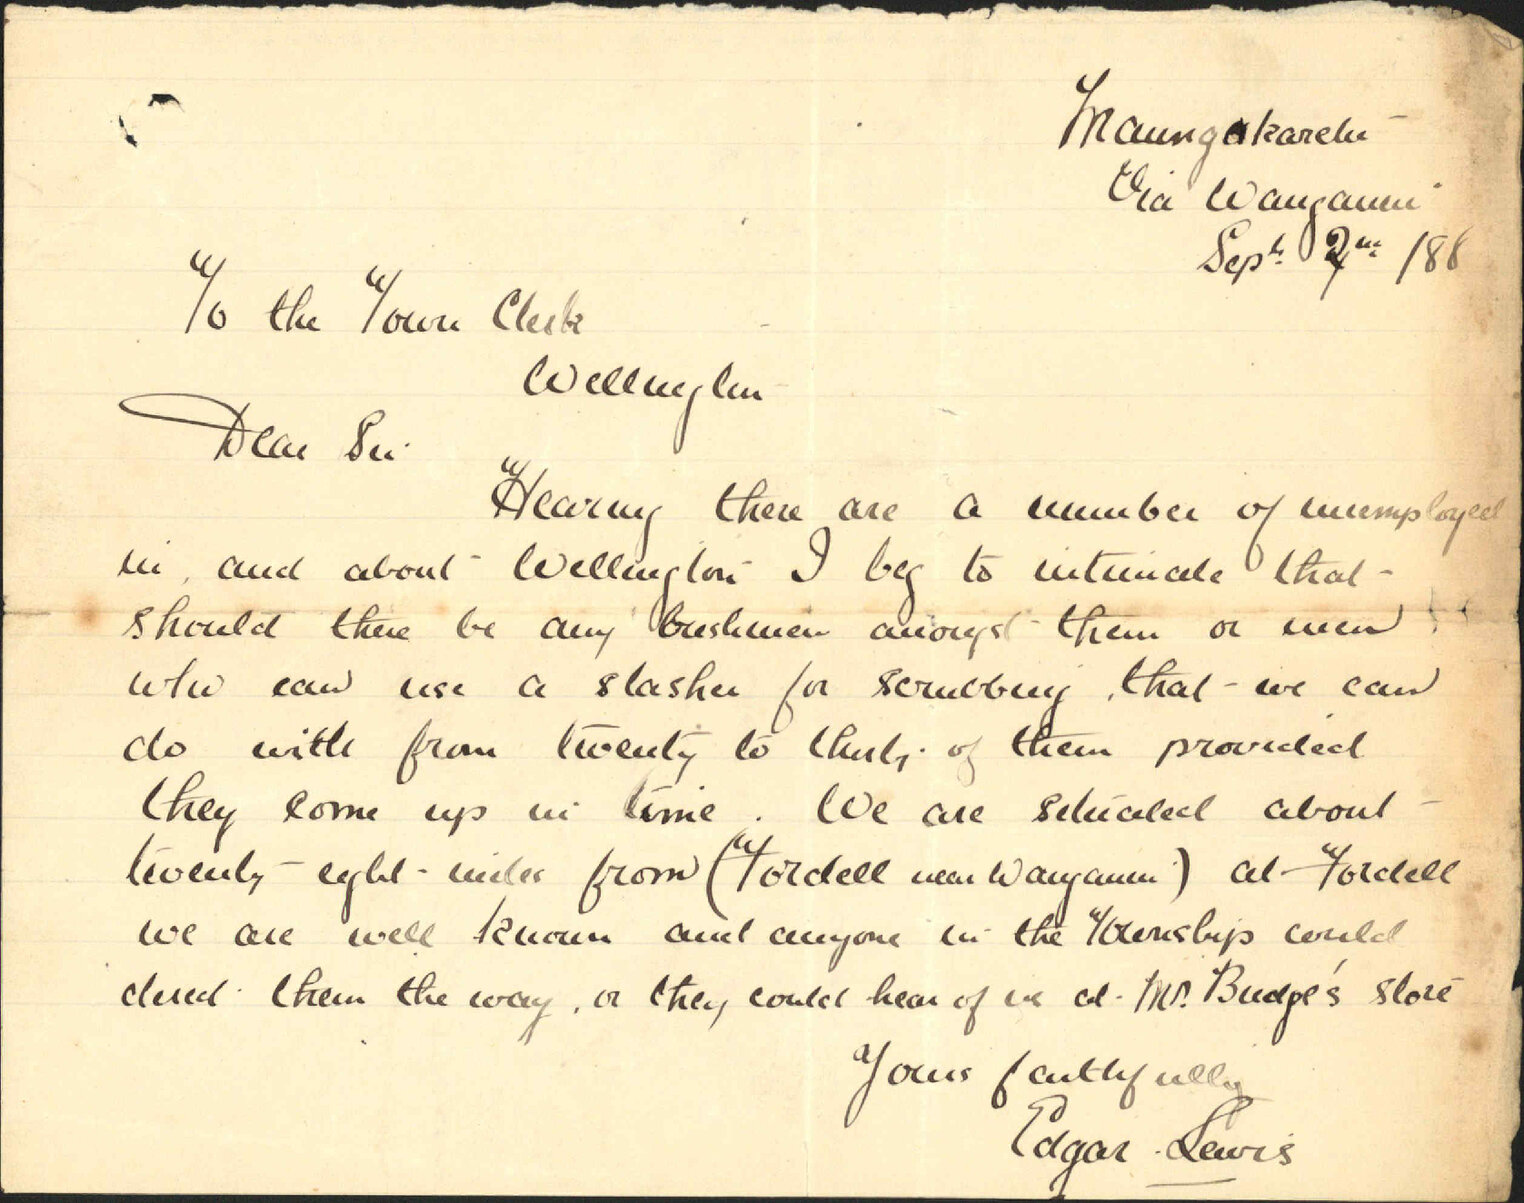 Maungakaretu
Via Wanganui
Sept. 2nd /88
To the Town Clerk
Wellington
Dear Sir
Hearing there are a number of unemployed
in, and about Wellington I beg to intimate that
should there be any bushmen amongst them or men
who can use a slasher for scrubbing, that we can
do with from twenty to thirty of them provided
they come up in time. We are situated about
twenty eight miles from (Fordell near Wanganui) at Fordell
we are well known and anyone in the Township could
direct them the way, or they could hear of us at Mr. Budge's store
Yours faithfully
Edgar Lewis